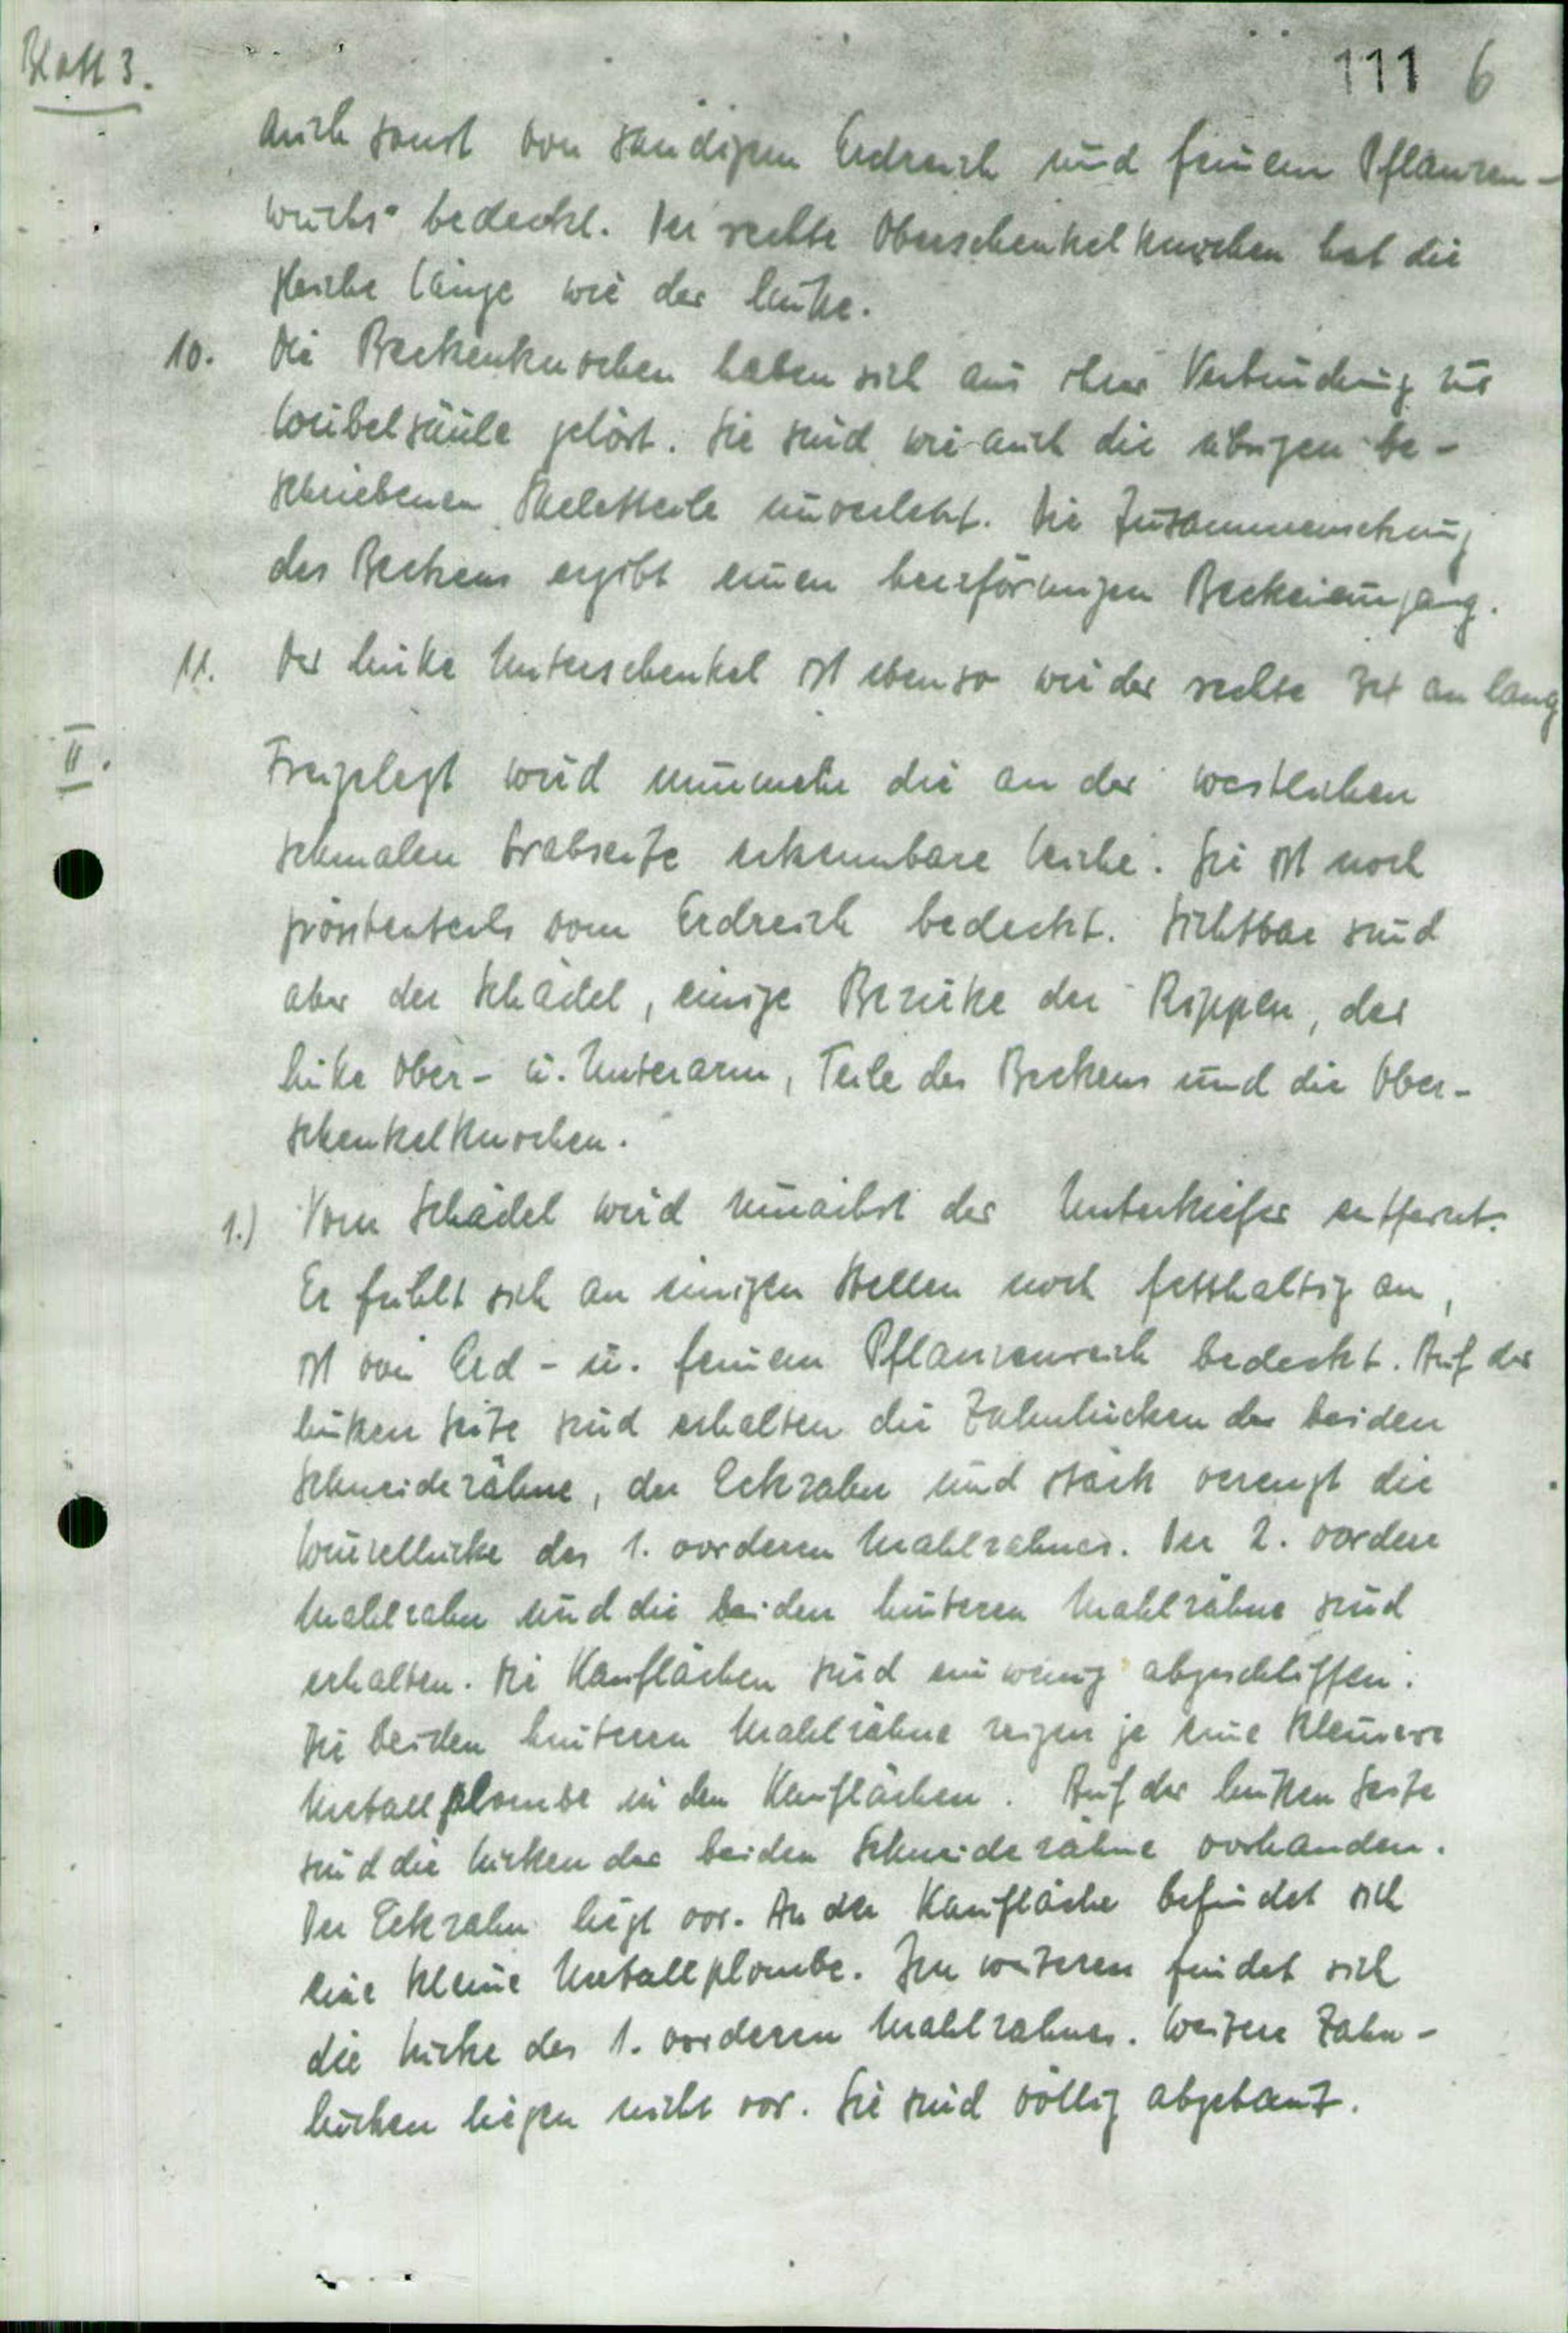 Blatt 3.
111 6
auch sonst von sandigem Erdreich und feinem Pflanzen-
wuchs bedeckt. Der rechte Oberschenkelknochen hat die
gleiche Länge wie der linke.
10. Die Beckenknochen haben sich aus ihrer Verbindung zur
Wirbelsäule gelöst. Sie sind wie auch die übrigen be-
schriebenen Skeletteile unverletzt. Die Zusammensetzung
des Beckens ergibt einen herzförmigen Beckeneingang.
11. Der linke Unterschenkel ist ebenso wie der rechte cm lang
II. Freigelegt wird nunmehr die an der westlichen
schmalen Grabseite erkennbare Leiche. Sie ist noch
grösstenteils vom Erdreich bedeckt. Sichtbar sind
aber der Schädel, einige Bezirke der Rippen, der
linke Ober- u. Unterarm, Teile des Beckens und die Ober-
schenkelknochen.
1.) Vom Schädel wird zunächst der Unterkiefer entfernt.
Er fühlt sich an einigen Stellen noch fetthaltig an,
ist von Erd- u. feinem Pflanzenreich bedeckt. Auf der
linken Seite sind erhalten die Zahnlücken der beiden
Schneidezähne, der Eckzahn und stark verengt die
Wurzellücke des 1. vorderen Mahlzahnes. Der 2. vordere
Mahlzahn und die beiden hinteren Mahlzähne sind
erhalten. Die Kauflächen sind ein wenig abgeschliffen.
Die beiden hinteren Mahlzähne zeigen je eine kleinere
Metallplombe in den Kauflächen. Auf der linken Seite
sind die Lücken der beiden Schneidezähne vorhanden.
Der Eckzahn liegt vor. An der Kaufläche befindet sich
eine kleine Metallplombe. Im weiteren findet sich
die Lücke des 1. vorderen Mahlzahnes. Weitere Zahn-
lücken liegen nicht vor. Sie sind völlig abgebaut.